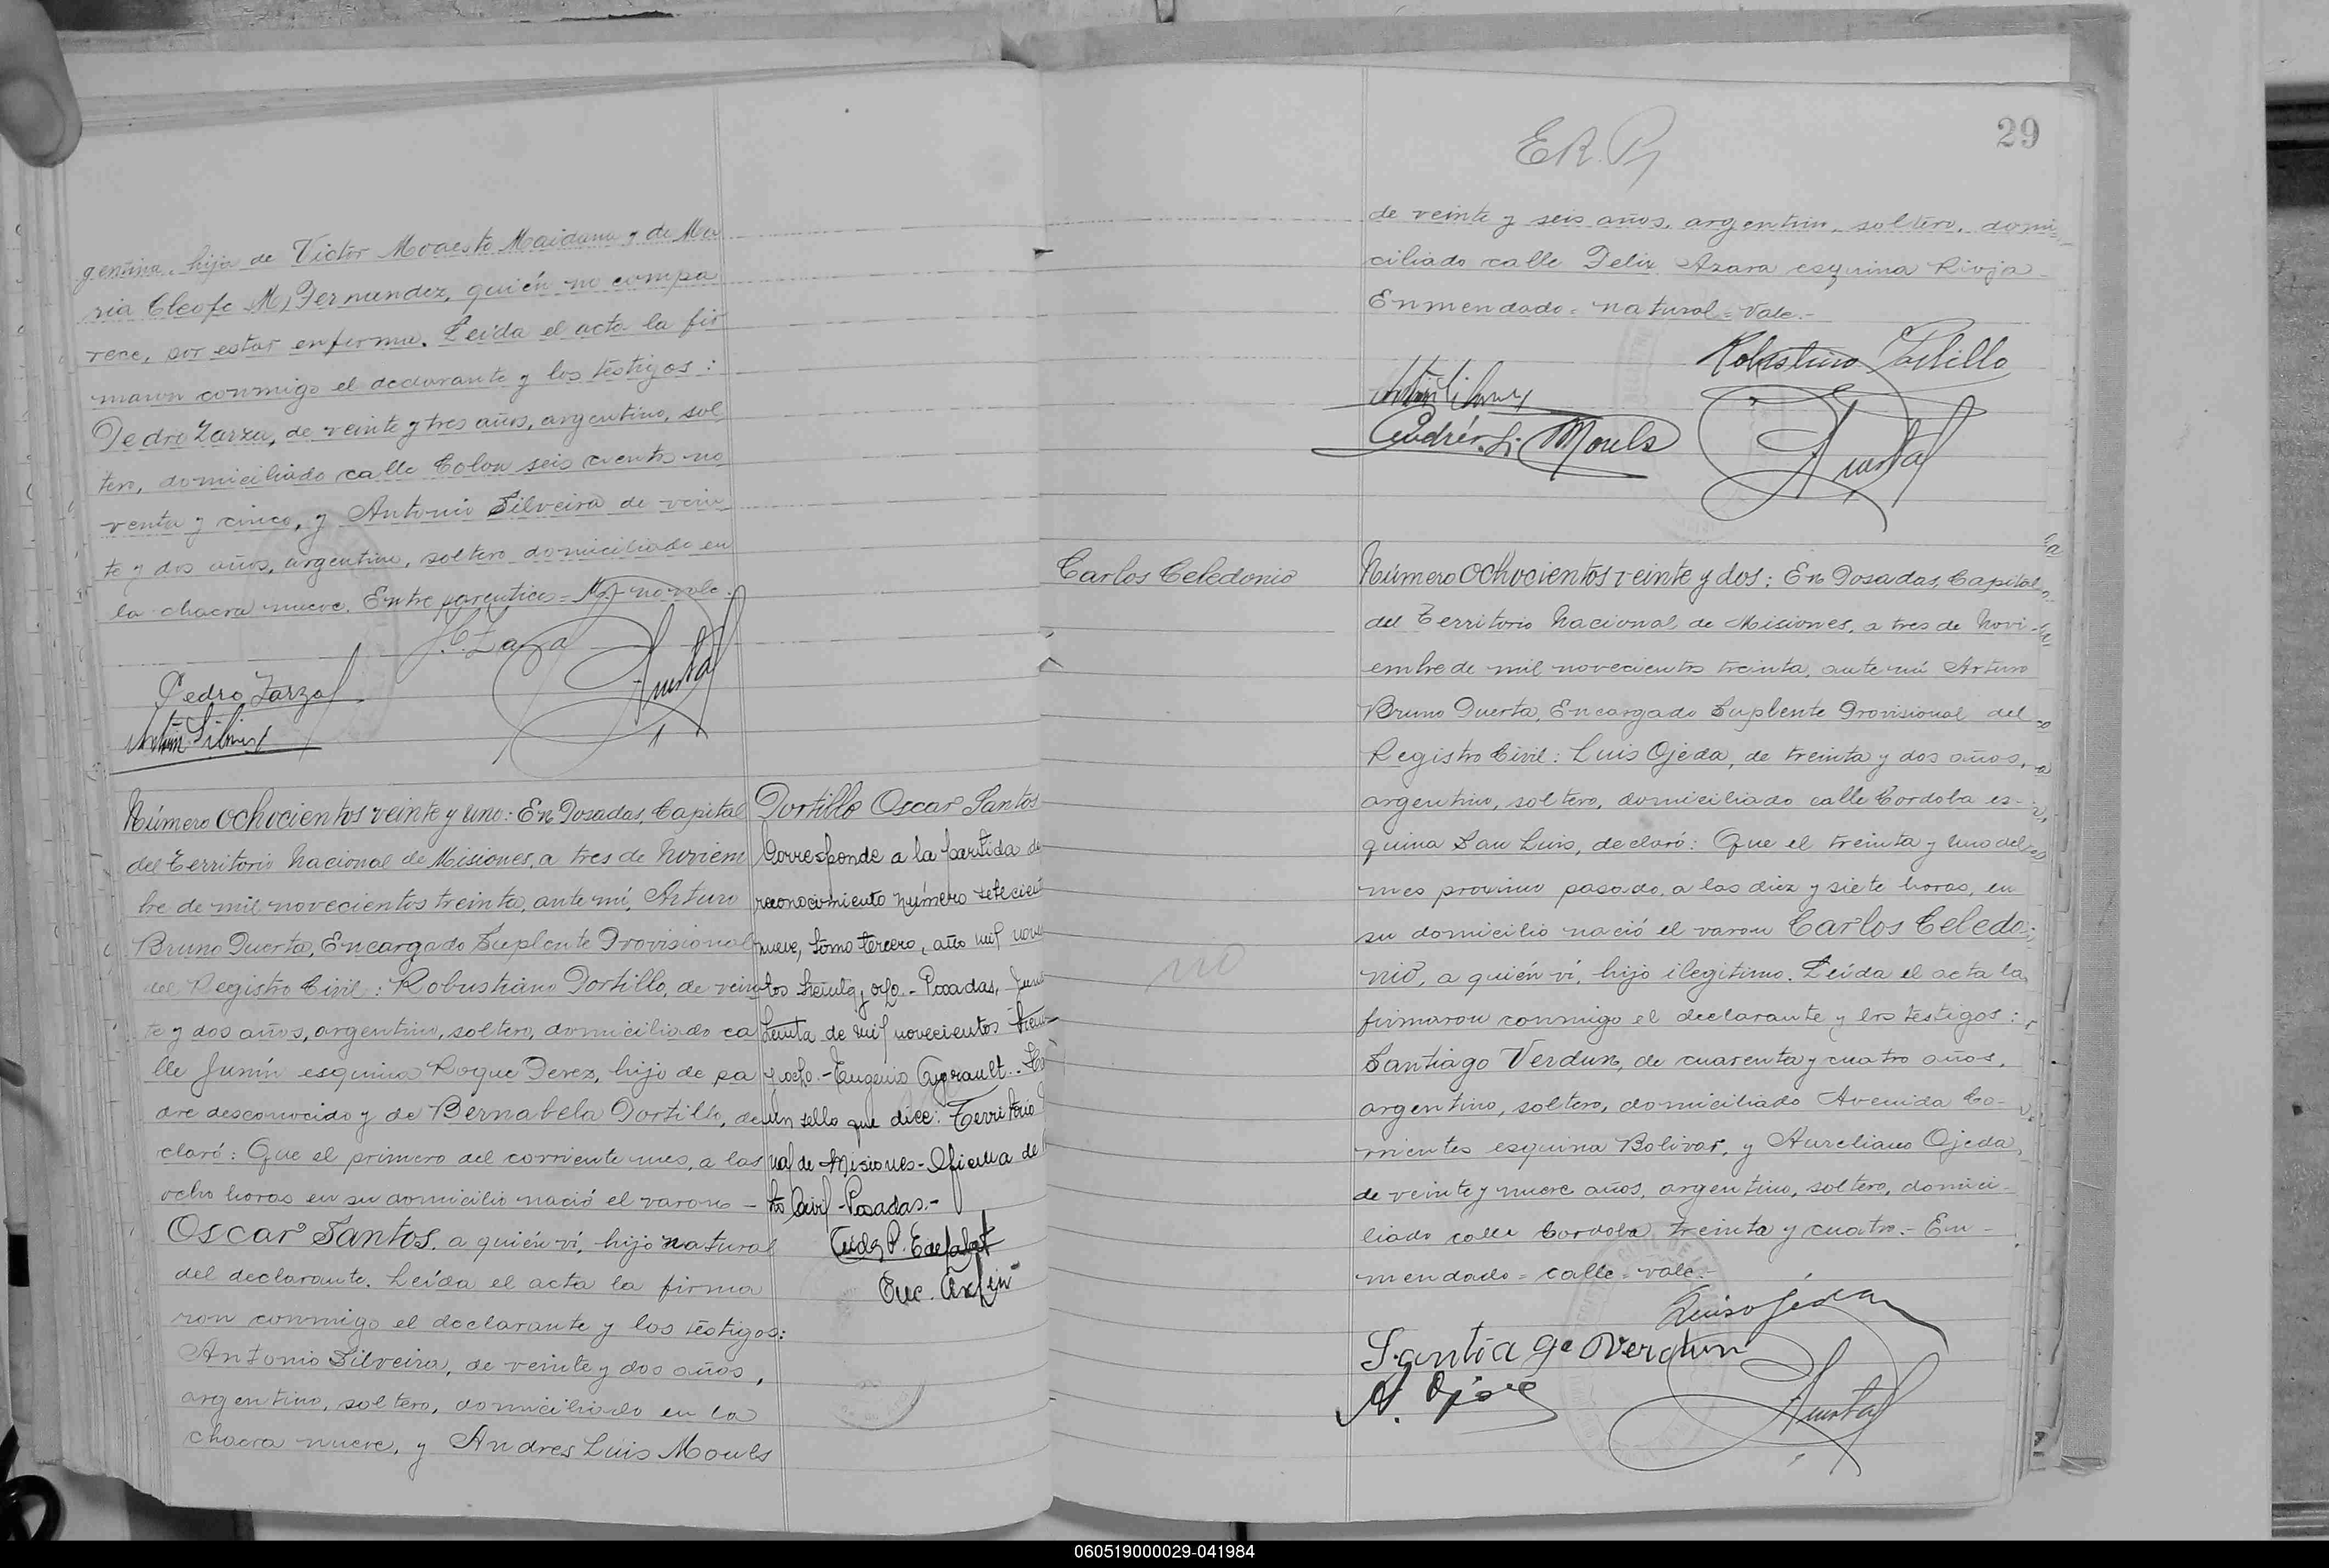 gentina, hija de Victor Modesto Maidana y de Ma
ria Cleofe M) Fernandez, quién no compa
rece, por estar enferma. Leída el acta la fir
maron conmigo el declarante y los testigos:
Pedro Zarza, de veinte y tres años, argentino, sol
tero, domiciliado calle Colon seis cientos no
venta y cinco, y Antonio Silveira de vein
te y dos años, argentino, soltero domiciliado en
la chacra nueve. Entre parentices = M) - no vale.
Pedro Zarza
Número ochocientos veinte y uno: En Posadas, Capital
del Territorio Nacional de Misiones, a tres de Noviem
bre de mil novecientos treinta, ante mí, Arturo
Bruno Puerta, Encargado Suplente Provisional
del Registro Civil: Robustiano Portillo, de vein
te y dos años, argentino, soltero, domiciliado ca
lle Junín esquina Roque Perez, hijo de pa
dre desconocido y de Bernabela Portillo, de
claró: Que el primero del corriente mes, a las
ocho horas en su domicilio nació el varon -
Oscar Santos, a quién ví, hijo natural
del declarante. Leída el acta la firma
ron conmigo el declarante y los testigos:
Antonio Silveira, de veinte y dos años,
argentino, soltero, domiciliado en la
chacra nueve, y Andres Luis Mouls
Portillo Oscar Santos
Corresponde a la partida de
reconocimiento número setecien
nueve, tomo tercero, año mil nove
tos treinta y ocho.- Posadas, Junio
treinta de mil novecientos trein
y ocho.- Eugenio
un sello que dice: Territorio
nal de Misiones - Oficina de
tro Civil - Posadas.-
29
E.R.P.
de veinte y seis años, argentino, soltero, domi-
ciliado calle Felix Azara esquina Rioja
Enmendado = natural = Vale.-
Robustiano Portillo
Andrés L. Mouls
Carlos Celedonio
no
Número ochocientos veinte y dos: En Posadas, Capital
del Territorio Nacional de Misiones, a tres de Novi-
embre de mil novecientos treinta, ante mí Arturo
Bruno Puerta, Encargado Suplente Provisional del
Registro Civil: Luis Ojeda, de treinta y dos años,
argentino, soltero, domiciliado calle Cordoba es-
quina San Luis, declaró: Que el treinta y uno del
mes proximo pasado, a las diez y siete horas, en
su domicilio nació el varon Carlos Celedo-
nio, a quién ví, hijo ilegitimo. Leída el acta la
firmaron conmigo el declarante y los testigos:
Santiago Verdun, de cuarenta y cuatro años,
argentino, soltero, domiciliado Avenida Co-
rrientes esquina Bolivar, y Aureliano Ojeda,
de veinte y nueve años, argentino, soltero, domici-
liado calle Cordoba treinta y cuatro.- En-
mendado = calle = vale.-
Luis Ojeda
Santiago Verdun
A. Ojeda
060519000029-041984